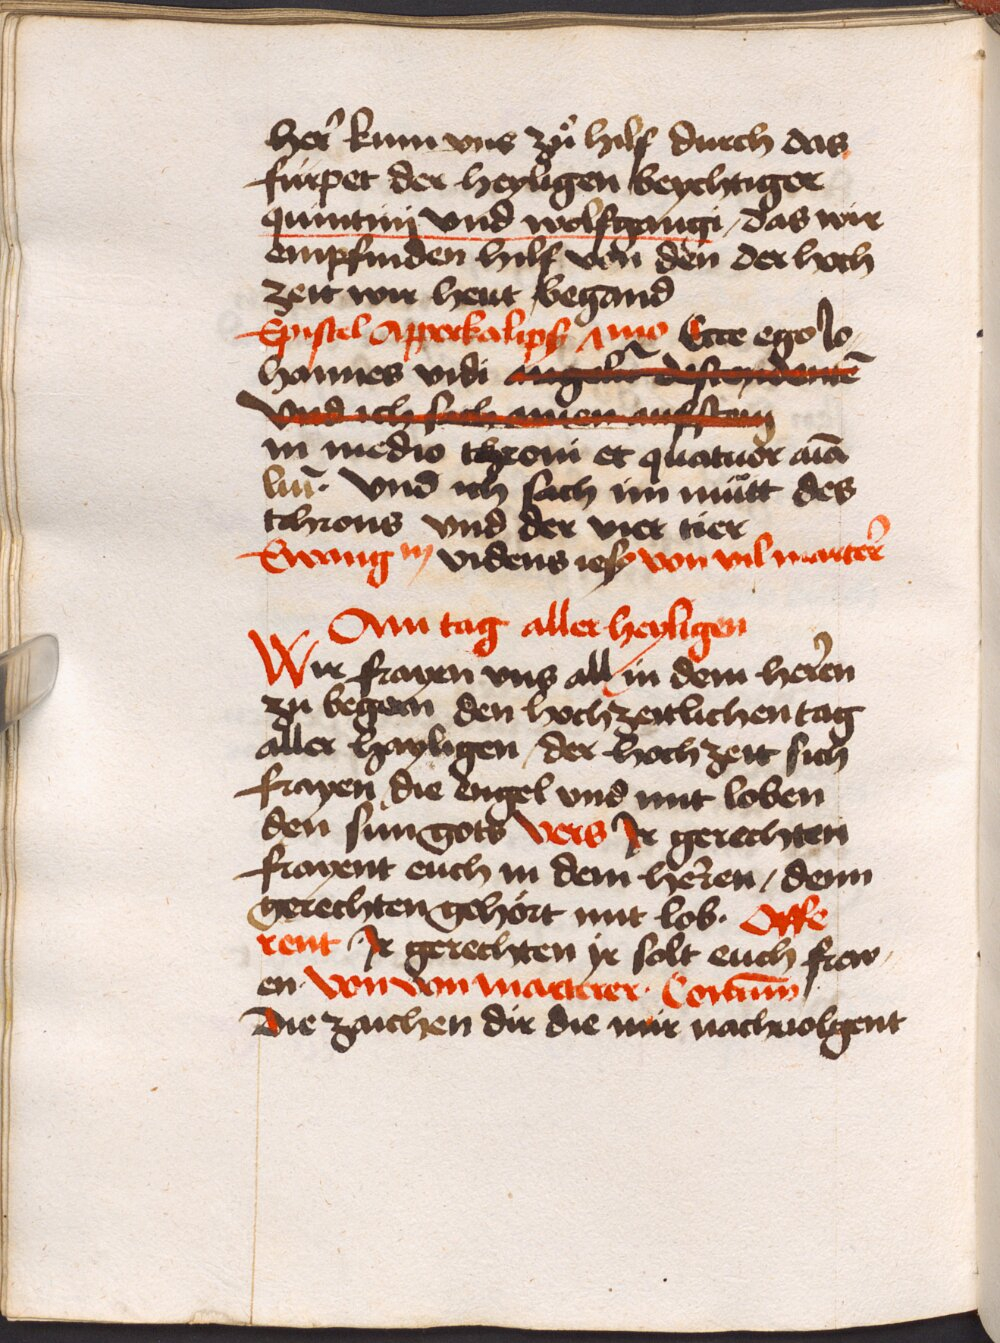 her̄ kum vns zů hilf durch das
fürpet der heyligen beychtiger
quintinj vnd wolfgangi / das wir
empfinden hilf von den der hoch
zeit wir heut begand
Epistel Appockalips Ecce ego Jo
hannes vidi angelū descendentē
vnd ich sach ainen aufsteig
in medio throni et quatuor aīa
liū. Vnd ich sach im mitt des
throns vnd der vier tier
Ewangm videns iesꝰ von vil marterer̄
Am tag aller heyligen
Wir frayen vns all in dem her̄en
zu begern den hochzeitlichen tag
aller hayligen / der hochzeit sich
frayen die engel vnd mit loben
den sun gots vers Jr gerechten
frayent euch in dem her̄en / denn
gerechten gehört mit lob. Offe
rent Jr gerechten jr solt euch frew
en. von von marterer. Comūn
Die zaichen dir die mir nachuolgent